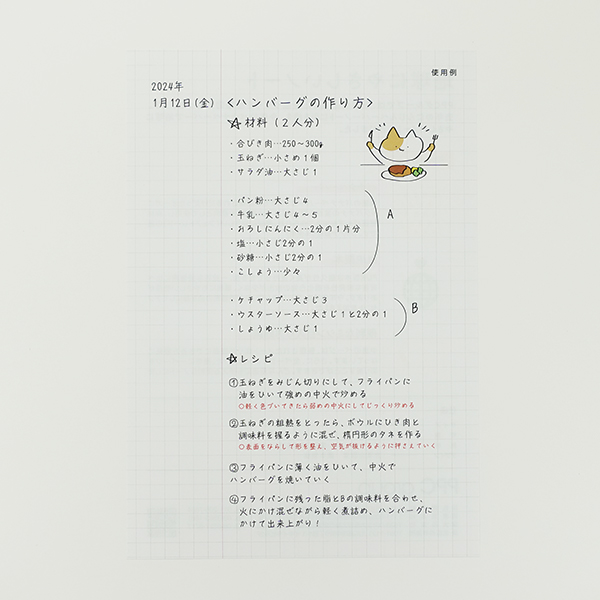 使用例
2024年
1月12日(金)
<ハンバーグの作り方>
☆材料(2人分)
・合びき肉…250～300g
・玉ねぎ…小さめ1個
・サラダ油…大さじ1
・パン粉…大さじ4
・牛乳…大さじ4～5
・おろしにんにく…2分の1片分
・塩…小さじ2分の1
・砂糖…小さじ2分の1
・こしょう…少々
A
・ケチャップ…大さじ3
・ウスターソース…大さじ1と2分の1
・しょうゆ…大さじ1
B
☆レシピ
①玉ねぎをみじん切りにして、フライパンに
油をひいて強めの中火で炒める
○軽く色づいてきたら弱めの中火にしてじっくり炒める
②玉ねぎの粗熱をとったら、ボウルにひき肉と
調味料を握るように混ぜ、楕円形のタネを作る
○表面をならして形を整え、空気が抜けるように押さえていく
③フライパンに薄く油をひいて、中火で
ハンバーグを焼いていく
④フライパンに残った脂とBの調味料を合わせ、
火にかけ混ぜながら軽く煮詰め、ハンバーグに
かけて出来上がり!